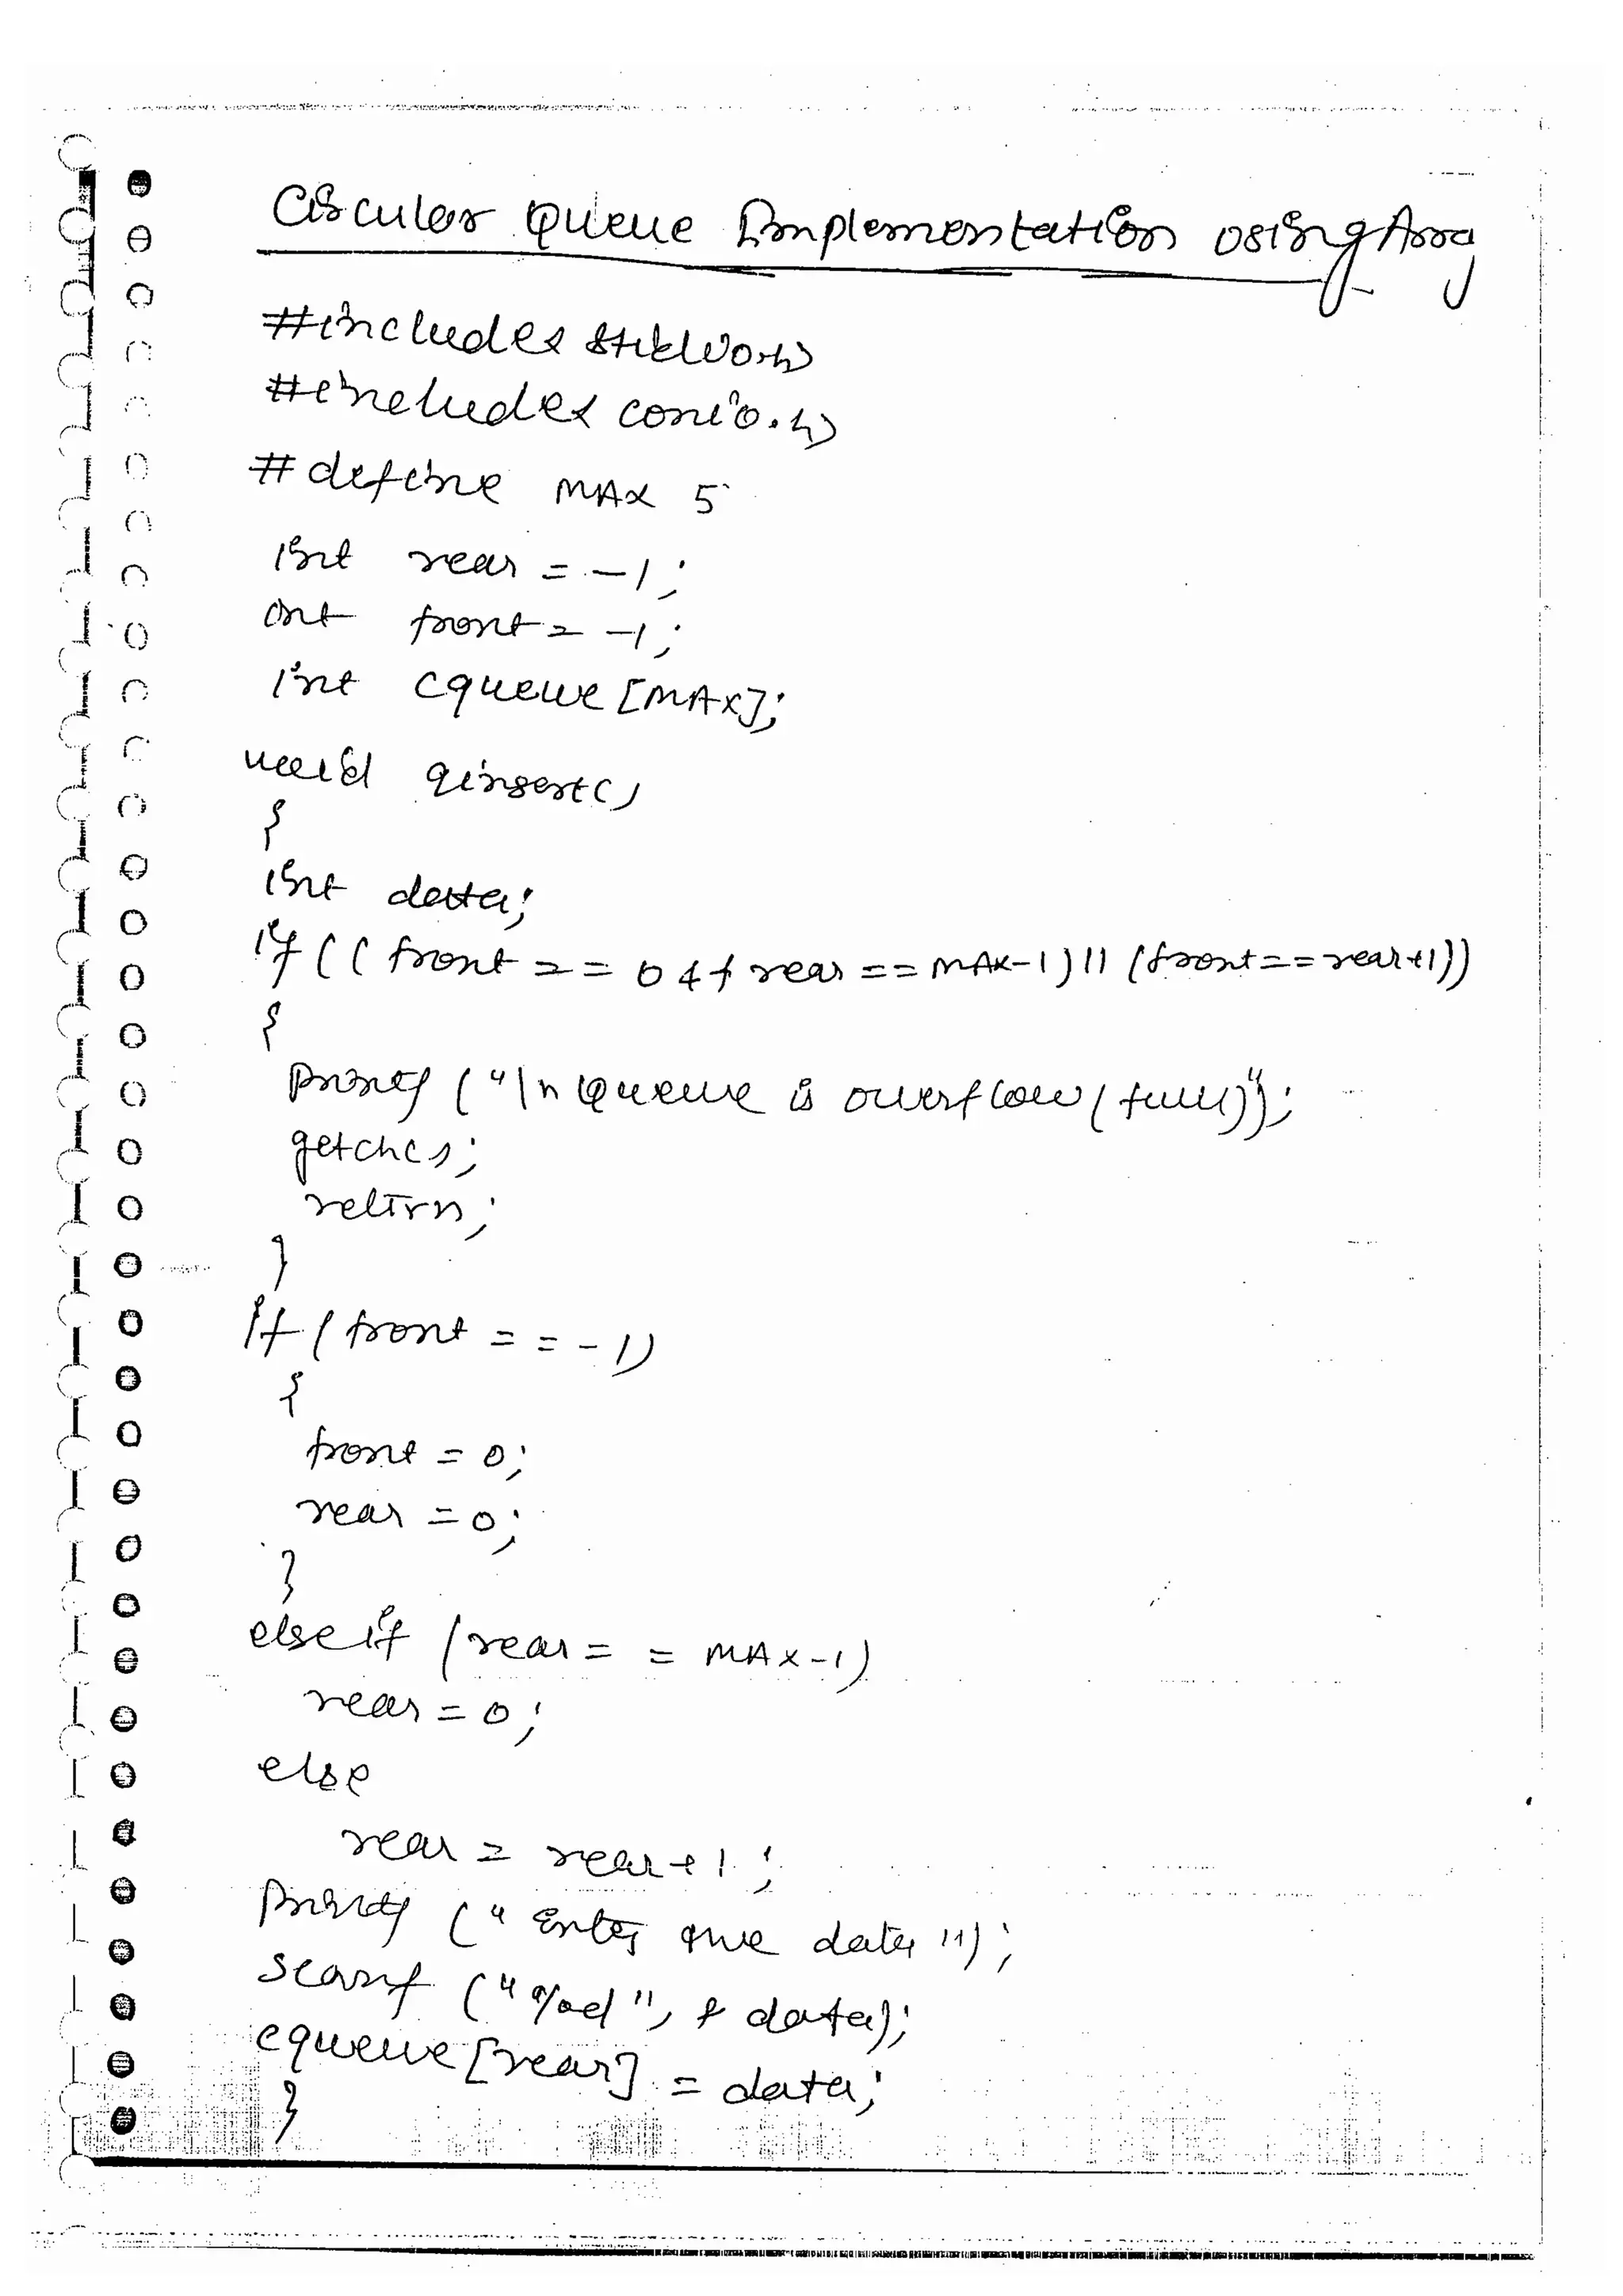 Circular Queue Implementation using Array
#include<stdio.h>
#include<conio.h>
#define MAX 5
int rear = -1;
int front = -1;
int cqueue[MAX];
void qinsert()
{
int data;
if((front == 0 && rear == MAX-1) || (front == rear+1))
{
printf("\n Queue is overflow (full)");
getch();
return;
}
if(front == -1)
{
front = 0;
rear = 0;
}
else if (rear == MAX-1)
rear = 0;
else
rear = rear+1;
printf("Enter the data");
scanf("%d", & data);
cqueue[rear] = data;
}